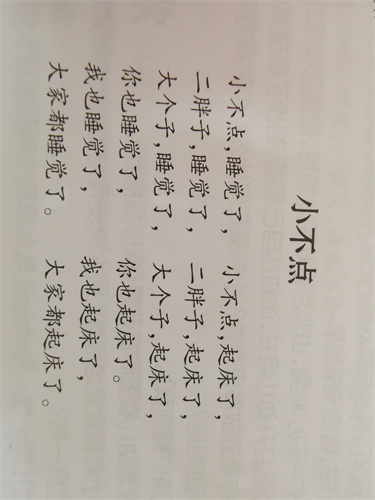 小不点
小不点,睡觉了,
二胖子,睡觉了,
大个子,睡觉了,
你也睡觉了,
我也睡觉了,
大家都睡觉了。
小不点,起床了,
二胖子,起床了,
大个子,起床了,
你也起床了。
我也起床了,
大家都起床了。